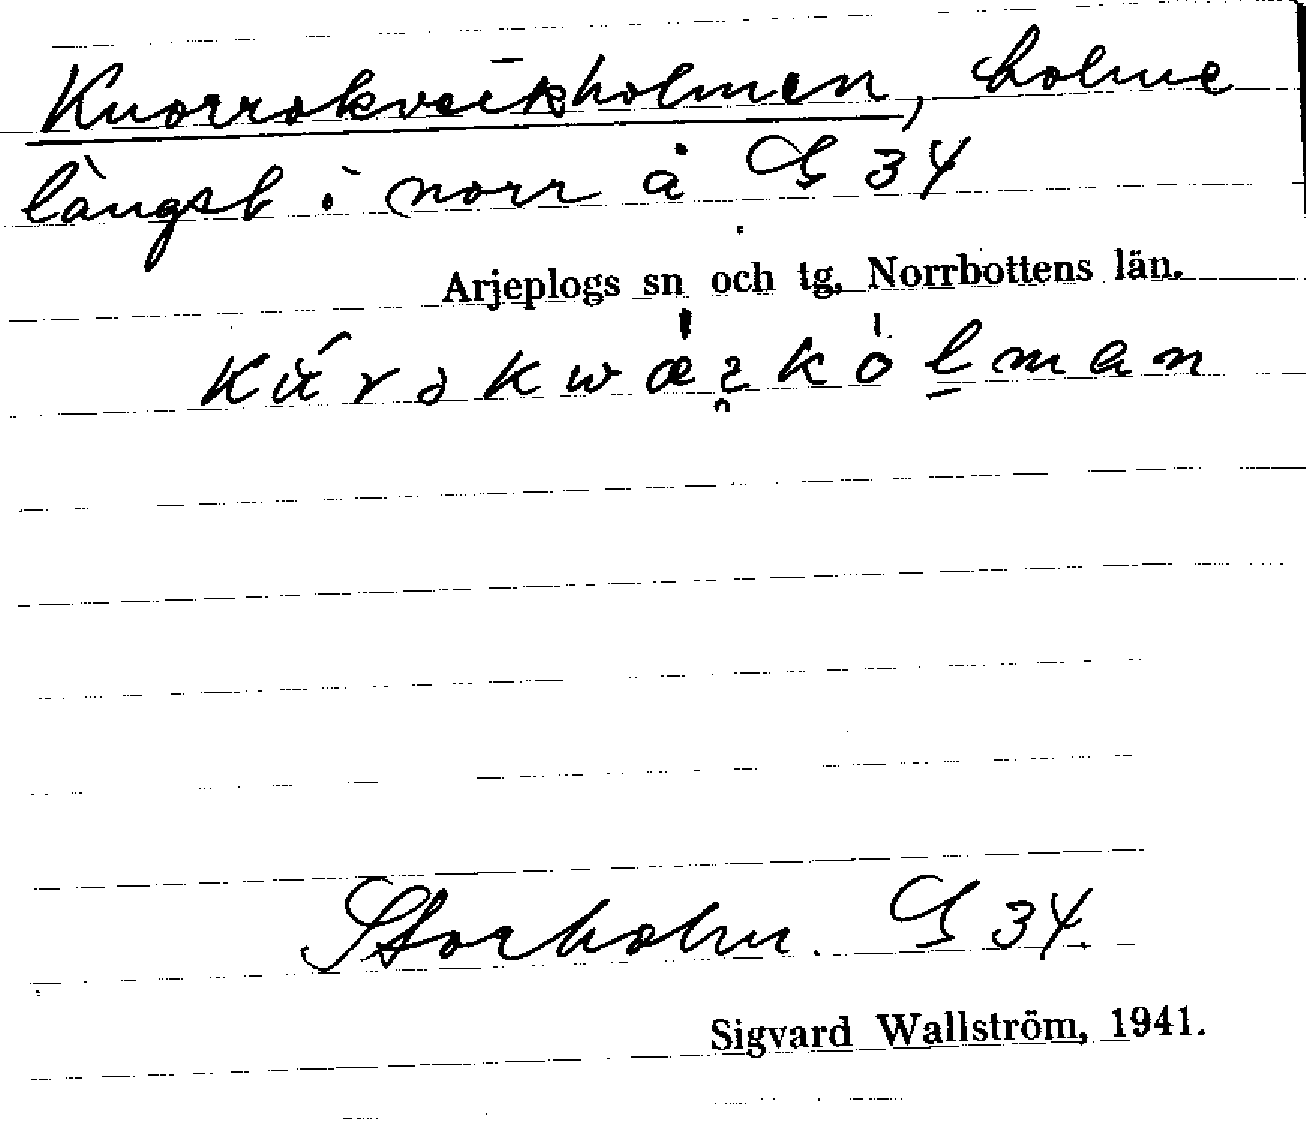 Kuorrokveikholmen, holme
längst i norr å G 34
Arjeplogs sn och tg, Norrbottens län.
Storholm. G 34.
Sigvard Wallström, 1941.